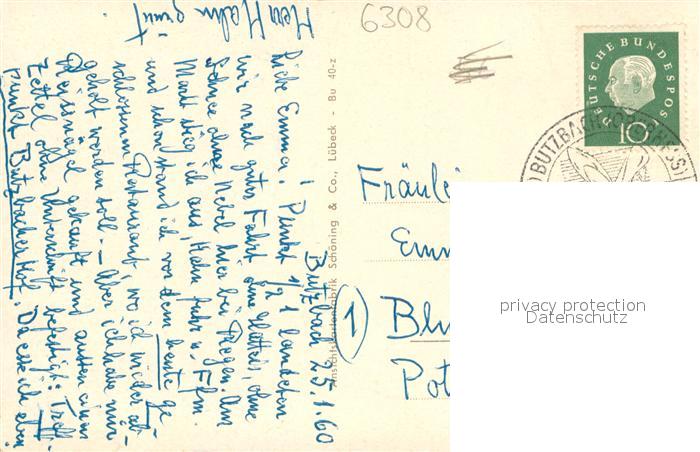 6308
DEUTSCHE BUNDESPOST
10
BUTZBACH
Butzbach 25.1.60
Liebe Emma! Punkt 1/2 1 landeten
wir nach guter Fahrt ohne Glatteis, ohne
Schnee ohne Nebel hier bei Regen. Am
Markt stieg ich aus, Hahn fuhr n. Ffm.
und schon stand ich vor dem heute ge-
schlossenen Restaurant, wo ich wieder ab-
geholt werden soll. - Aber ich habe mir
Reissnägel gekauft und aussen einen
Zettel ohne Unterschrift befestigt: Treff-
punkt Butzbacher Hof. Da esse ich eben.
Herr Hahn grüsst.
Ansichtskartenfabrik Schöning & Co., Lübeck - Bu 40-z
Fräulei
Em
1 Blu
Pot
privacy protection
Datenschutz